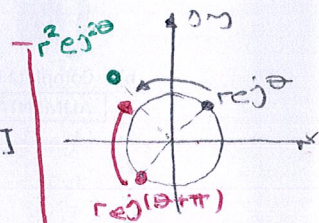 r²e^{j2θ}
Jm
re^{jθ}
I
re^{j(θ+π)}